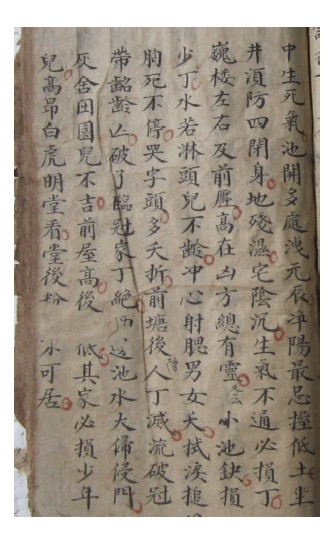 中生死氣池開多庭洩元辰平陽最忌擡低土坐
井須防四閉身地殘濕宅陰沉生氣不通必損丁
巍楼左右及前壓高在凶方總有靈小池鈌損
少丁水若淋頭兒不齡冲心射腮男女夭拭淚搥
胸死不停哭字頭多夭折前塘後人丁滅流破冠
帶齠齡凶破了臨冠家丁絕池水大歸侵門
灰舍田園児不吉前屋高後低其家必損少年
兒高昂白虎明堂看堂後水可居